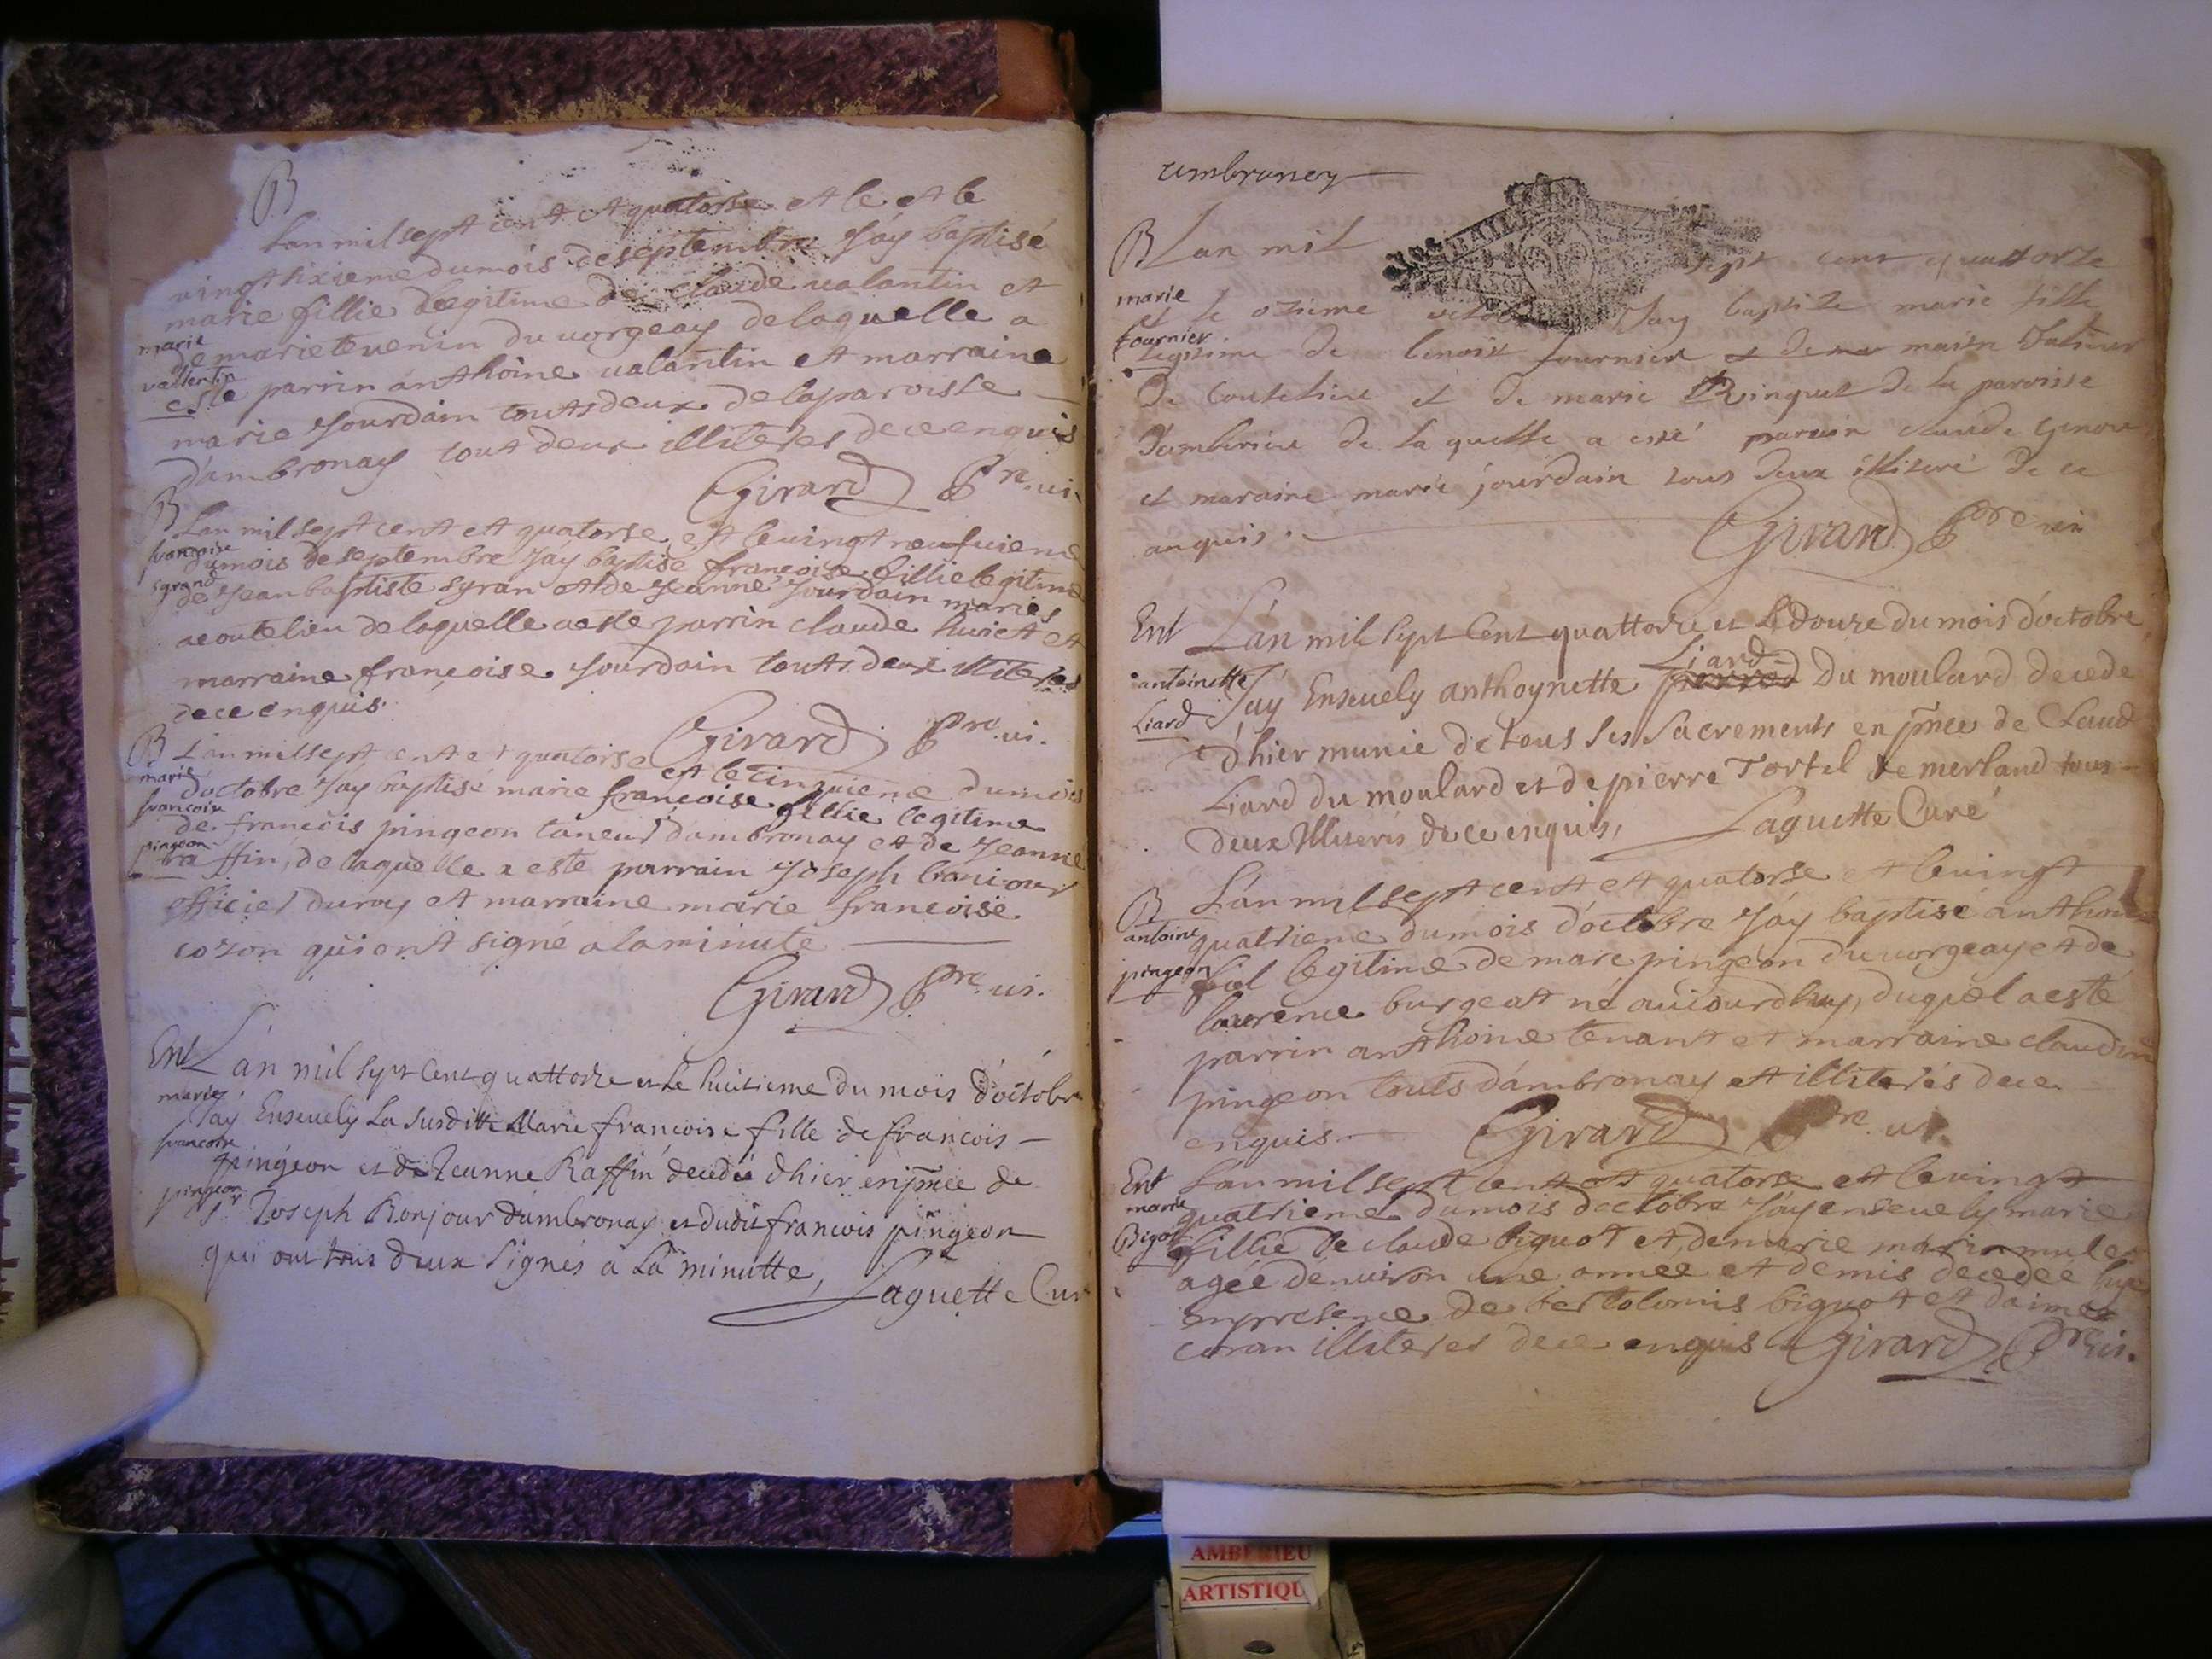 B
Lan mil sept cent et quatorse et le et le
vingt sixieme du mois de septembre Jay baptisé
marie fillie legitime de claude valantin et
marie
de marie tevenin du vorgeay de laquelle a
vallentin
este parrin anthoine valantin et marraine
marie Jourdain touts deux de la paroisse
d'ambronay tout deux illiteres de ce enquis
Girard Pre. vi.
B Lan mil sept cent et quatorse et le vingt neufvieme
francoise
du mois de septembre Jay baptisé françoise fillie legitime
sgrand
de Jean baptiste sgran et de Jeanne Jourdain mariés
a coutelieu de laquelle a este parrin claude huict et
marraine françoise Jourdain touts deux illiteres
de ce enquis
Girard Pre. vi.
B L'an mil sept cent et quatorse et le cinquieme du mois
marie
d'octobre Jay baptisé marie françoise fillie legitime
francoise
de françois pingeon taneur d'ambronay et de Jeanne
pingeon
raffin, de laquelle a este parrain Joseph
officier du roy et marraine marie francoise
cozon qui ont signé a la minute
Girard Pre. vi.
Ent L'an mil sept Cent quattorze et le huitieme du mois d'octobre
marie
J'ay Ensevely La susditte Marie francoise fille de francois
francoise
pingeon et de Jeanne Raffin decedée d'hier en pnce de
pingeon
Sr Joseph Bonjour d'ambronay et dudit francois pingeon
qui ont tous deux signés a La minutte, Laguette Cur
ambronay
B Lan mil sept cent quattorze
marie
et le oziéme octobre Jay baptize marie fille
fournier
legitime de benoist fournier et de ma maitr
de Coutelieu et de marie Ringuet de la paroisse
d'amberieu de la quelle a esté parain claude
et maraine marie jourdain tous deux illiteré de ce
anquis.
Girard Pre vi
Ent L'an mil sept Cent quattorze et Le douze du mois d'octobre
antoinette
J'ay Ensevely anthoynette perrod Liard Du moulard decede
Liard
d'hier munie de tous ses Sacrements en pnce de Claud
Liard du moulard et de pierre Tortel de merland tous
deux Illiterés de ce enquis, Laguette Curé
B L'an mil sept cent et quatorse et le vingt
antoine
quatrieme du mois d'octobre J'ay baptisé anthoine
pingeon
fiel legitime de marc pingeon du vorgeay et de
laurence burgeat né aujourd'huy, duquel a este
parrin anthoine tenant et marraine claudine
pingeon touts d'ambronay et illiterés de ce
enquis Girard Pre. vi.
Ent L'an mil sept cent et quatorse et le vingt
marie
quatrieme du mois d'octobre J'ay ensevely marie
Bigot
fillie de claude biguot et de marie
agée d'environ une année et demis decedée hyer
en presence de bertolomis biguot et d'aimé
coran illiteres de ce enquis Girard Pre vi.
AMBERIEU
ARTISTIQU